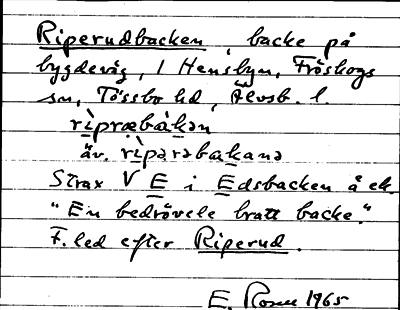 Riperudbacken, backe på
bygdeväg, i Hensbyn, Fröskogs
sn, Tössbo hd, Älvsb. l.
rìpræbàkən
äv. rìpərəbakənə
Strax V E i Edsbacken å ek.
"En bedrövele bratt backe."
F.led efter Riperud.
E. 1965